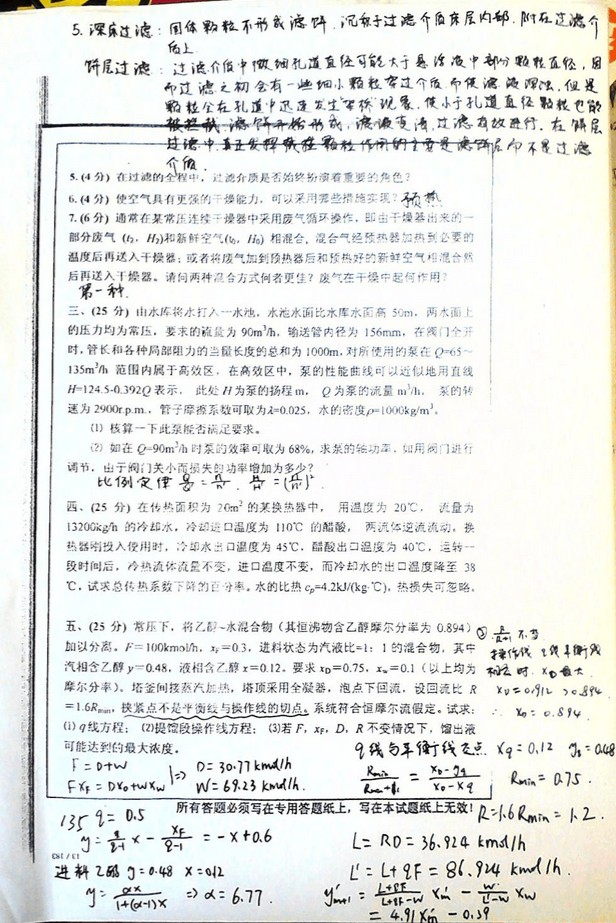 5. 深床过滤：固体颗粒不形成滤饼，沉积于过滤介质床层内部，附在过滤介
质上.
饼层过滤：过滤介质中微细孔道直径可能大于悬浮液中部分颗粒直径，因
而过滤之初会有一些细小颗粒穿过介质而使滤液浑浊，但是
颗粒会在孔道中迅速发生"架桥"现象，使小于孔道直径颗粒也能
被拦截，滤饼开始形成，滤液变清，过滤有效进行. 在饼层
过滤中，真正发挥拦截颗粒作用的主要是滤饼层而不是过滤
介质.
5. (4 分) 在过滤的全程中，过滤介质是否始终扮演着重要的角色?
6. (4 分) 使空气具有更强的干燥能力，可以采用哪些措施实现? 预热
7. (6 分) 通常在某常压连续干燥器中采用废气循环操作，即由干燥器出来的一
部分废气 (t₂, H₂)和新鲜空气(t₀, H₀) 相混合, 混合气经预热器加热到必要的
温度后再送入干燥器; 或者将废气加到预热器后和预热好的新鲜空气相混合然
后再送入干燥器。请问两种混合方式何者更佳? 废气在干燥中起何作用?
第一种.
三、(25 分) 由水库将水打入一水池，水池水面比水库水面高 50m，两水面上
的压力均为常压，要求的流量为 90m³/h，输送管内径为 156mm，在阀门全开
时, 管长和各种局部阻力的当量长度的总和为 1000m, 对所使用的泵在 Q=65～
135m³/h 范围内属于高效区，在高效区中，泵的性能曲线可以近似地用直线
H=124.5-0.392Q 表示， 此处 H 为泵的扬程 m， Q 为泵的流量 m³/h， 泵的转
速为 2900r.p.m.，管子摩擦系数可取为λ=0.025，水的密度ρ=1000kg/m³。
⑴ 核算一下此泵能否满足要求。
⑵ 如在 Q=90m³/h 时泵的效率可取为 68%，求泵的轴功率，如用阀门进行
调节，由于阀门关小而损失的功率增加为多少?
比例定律
四、(25 分) 在传热面积为 20m² 的某换热器中， 用温度为 20℃， 流量为
13200kg/h 的冷却水，冷却进口温度为 110℃ 的醋酸， 两流体逆流流动，换
热器刚投入使用时，冷却水出口温度为 45℃，醋酸出口温度为 40℃，运转一
段时间后，冷热流体流量不变，进口温度不变，而冷却水的出口温度降至 38
℃，试求总传热系数下降的百分率。水的比热 cp=4.2kJ/(kg·℃)，热损失可忽略。
五、(25 分) 常压下，将乙醇-水混合物 (其恒沸物含乙醇摩尔分率为 0.894)
加以分离。F=100kmol/h，xF=0.3，进料状态为汽液比=1：1 的混合物，其中
汽相含乙醇 y=0.48，液相含乙醇 x=0.12。要求 xD=0.75，xw=0.1 (以上均为
摩尔分率)。塔釜间接蒸汽加热，塔顶采用全凝器，泡点下回流，设回流比 R
=1.6Rmin，挟紧点不是平衡线与操作线的切点。系统符合恒摩尔流假定。试求:
(1) q 线方程; (2)提馏段操作线方程; (3)若 F，xF，D，R 不变情况下，馏出液
可能达到的最大浓度。
③ R/(R+1) 不变
操作线 与平衡线
相交时. xD 最大
xD=0.912 >0.894
∴ xD=0.894
q线与平衡线交点 xq=0.12 yq=0.48
F=D+W
FxF=DxD+WxW |⇒ D=30.77 kmol/h
W=69.23 kmol/h.
Rmin/(Rmin+1) = (xD-yq)/(xD-xq) Rmin=0.75.
所有答题必须写在专用答题纸上，写在本试题纸上无效!
R=1.6Rmin=1.2.
135 q=0.5
y= q/(q-1) x - xF/(q-1) = -x+0.6
进料乙醇 y=0.48 x=0.12
y= αx/(1+(α-1)x) ⇒ α=6.77.
L=RD=36.924 kmol/h
L'=L+qF=86.924 kmol/h.
y'm+1= (L+qF)/(L+qF-W) x'm - W/(L'-W) xw
=4.91x'm-0.39